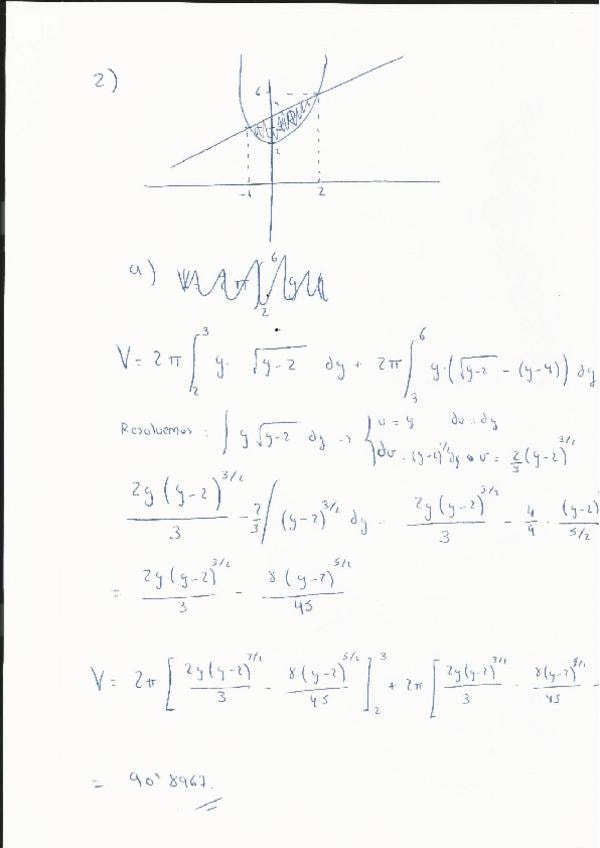 2)
6
2
-1 2
a)
V = 2π ∫₂³ y · √(y-2) dy + 2π ∫₃⁶ y · (√(y-2) - (y-4)) dy
Resolvemos : ∫ y √(y-2) dy → { u = y du = dy
dv = (y-2)^{1/2} dy v = 2/3 (y-2)^{3/2}
2y(y-2)^{3/2}/3 - 2/3 ∫ (y-2)^{3/2} dy = 2y(y-2)^{3/2}/3 - 4/9 · (y-2)/5/2
= 2y(y-2)^{3/2}/3 - 8(y-2)^{5/2}/45
V = 2π [ 2y(y-2)^{3/2}/3 - 8(y-2)^{5/2}/45 ]₂³ + 2π [ 2y(y-2)^{3/2}/3 - 8(y-2)^{5/2}/45 -
= 90'8967.